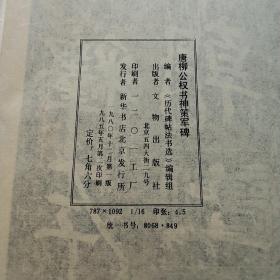 唐柳公权书神策军碑
编者 《历代碑帖法书选》编辑组
出版者 文物出版社
北京五四大街二九号
印刷者 一二〇一工厂
发行者 新华书店北京发行所
一九八〇年十二月第一版
一九八五年五月第二次印刷
定价：七角六分
787×1092 1/16 印张：4.5
统一书号：8068·849